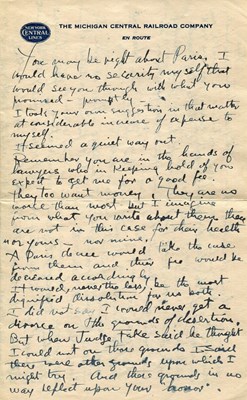 NEW YORK
CENTRAL
LINES
THE MICHIGAN CENTRAL RAILROAD COMPANY
EN ROUTE
You may be right about Paris. I
would have no security myself that
would see you through with what you
promised – promptly –
I took your own suggestion in that matter
at considerable increase of expense to
myself.
It seemed a quiet way out.
Remember you are in the hands of
lawyers who in keeping hold of you
expect to get me for a good fee.
They too want money – They are no
worse than most but I imagine
from what you write about them they
are not in this case for their health
nor yours – nor mine.
A Paris decree would take the case
from them and their fee would be
decreased accordingly
It would, nevertheless, be the most
dignified dissolution for us both.
I did not say I would never get a
divorce on the grounds of desertion.
But when Judge Fake said he thought
I could not on those grounds I said
there were other grounds upon which I
might try. And those grounds in no
way reflect upon your "honor".